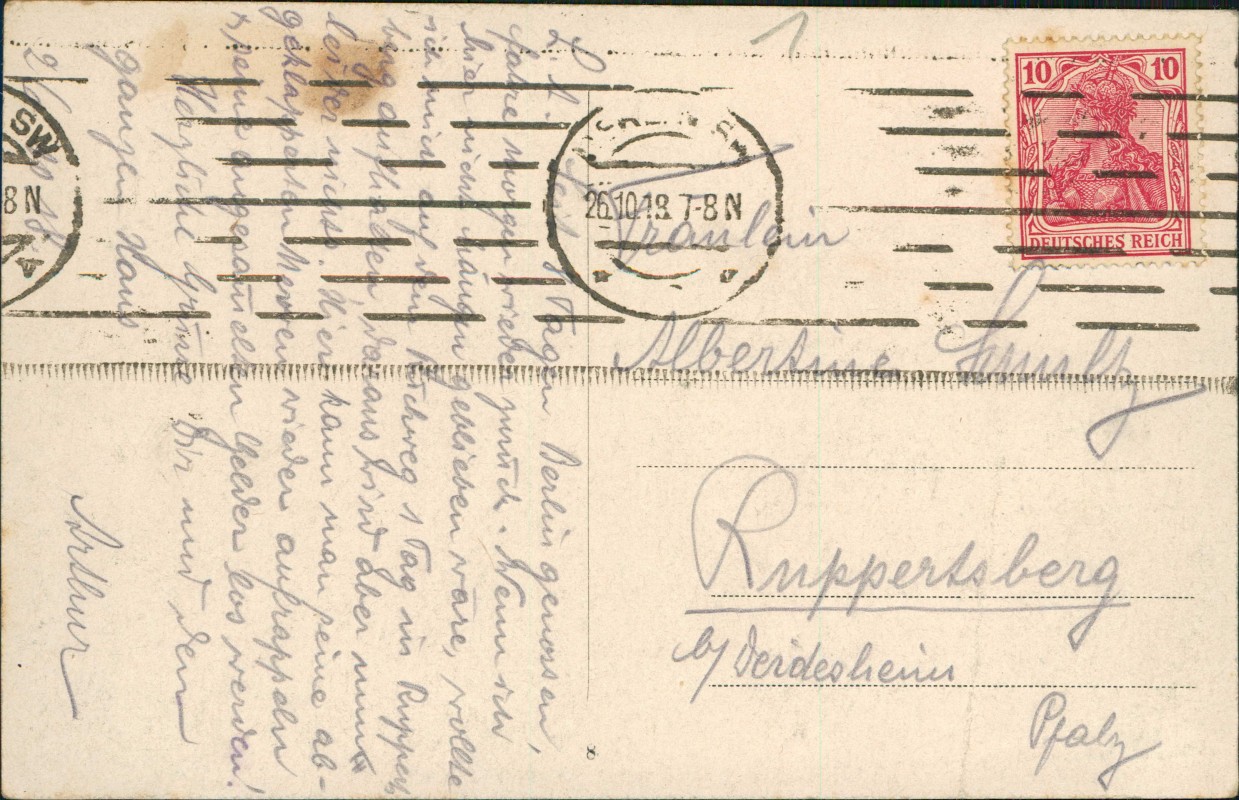 1
10 10
DEUTSCHES REICH
BERLIN SW
26.10.18. 7-8 N
SW
8 N
Fräulein
Albertine Schultz
Ruppertsberg
b/ Deidesheim
Pfalz
Tagen Berlin genossen,
fahre morgen wieder zurück. Wenn ich
hier nicht hängen geblieben wäre, wollte
ich mich auf dem Rückweg 1 Tag in Ruppertsberg
aufhalten daraus wird aber nun
leider nichts. Hier kann man seine ab-
geklapperten Nerven wieder aufrappeln
& seine angesammelten Gelder los werden!
Herzliche Grüsse Dir und dem
ganzen Haus
Arthur
8